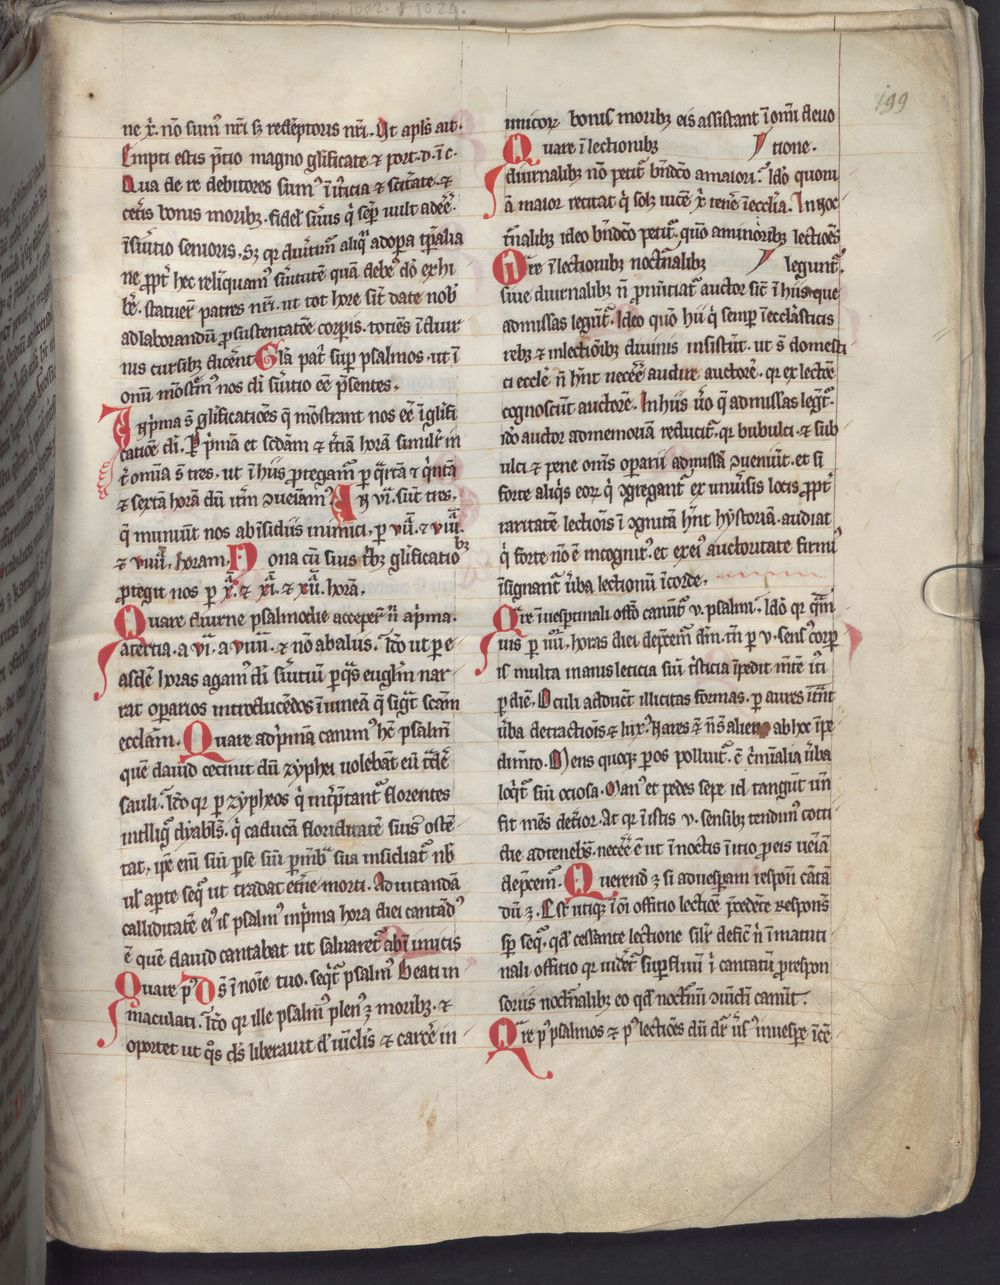 199
ne x̄. nō sumꝰ nr̄i sꝫ redēptoris nr̄i. Ut apl̄s ait.
Empti estis p̄tio magno gl̄ificate ⁊ port. d. ī c.
Qua de re debitores sumꝰ ī iticia ⁊ sc̄itate. ⁊
cet̄is bonis moribꝫ. fidel̓ s̓uus q̇ sēp uult adēē.
ī s̓uitio senioris. Sꝫ qꝛ
ne ꝓpt̓ hec reliquamꝰ s̓uitutē quā debeꝰ dō exhi
b̓e. statuer̄ patres nr̄i. ut tot hore sīt date nob̄
ad laborandū ꝓ sustentatōe corꝑis. tociēs ī diur
nis cursibꝫ dicēnt Gl̄a pat̓ suꝑ psalmos. ut ī
om̄i mōst̄mꝰ nos dī s̓uitio eē p̄sentes.
In p̓ma s̄ gl̄ificatiōes q̄ mōstrant nos eē ī gl̄ifi
catiōe dī. Per p̓mā et sc̄dam ⁊ t̓ciā horā simil̓r in
t̓ omīa s̄ tres. ut ī hiis ꝓtegam̄ p q̓rtā ⁊ q̓ntā
⁊ sextā horā dū it̓m ꝯueiāmꝰ. In vi. sūt tres.
q̄ muniūt nos ab īsidiis inimici. p vii. ⁊ viii.
⁊ viiii. horam. Nona cū suis tībꝫ glificatioībꝫ
ꝓtegit nos p x. ⁊ xi. ⁊ xii. horā.
Quare diurne psalmodie acceper̄ n̄ a p̓ma.
a tertia. a vi. a viiii. ⁊ nō ab aliis. Id̓o ut p e
asdē horas agam̄ dī s̓uitiū p q̓s euglīm nar
rat oparios introducēdos ī uineā q̄ sig̓t scām
eccl̄am. Quare ad p̓mā canimꝰ hc̄ psalm̄
quē dauid cecinit dū zyphei uolebāt eū t̓dē
sauli. Id̓o qꝛ p zypheos q̇ int̓p̄tant̄ florentes
intelliḡ dyabl̄s. q̇ caducā floriditatē suis ostē
tat. ip̄e eni siū p se siū p mēbͣ sua insidiat̄ nb̄
ul̓ apte seq̄ ut tradat et̓ne morti. Ad uitandā
calliditatē eiꝰ is psalmꝰ in p̓ma hora diei cantādꝰ
ē quē dauid cantabat ut saluaret̄ ab inimicis
Quare pꝰ Ds̄ ī noīe tuo. seq̓t̄ psalmꝰ Beati in
maculati. Id̓o qꝛ ille psalmꝰ plenꝰ ꝫ moribꝫ. ⁊
oportet ut q̓s ds̄ liberauit d̓ uīclis ⁊ carc̓e in
imicoꝝ bonis moribꝫ eis assistant ī om̄i deuo
Quare ī lectionibꝫ tione.
diurnalibꝫ nō petit̄ bn̄dcō a maiori. Id̓o quoni
ā maior recitat q̇ solꝫ uicē x̄ tenē̄ ī ecclīa. In noc
t̓nalibꝫ ideo bn̄dcō petit̄. quō a minoribꝫ lectiōes
Quare ī lectionibꝫ noct̓nalibꝫ legunt̄.
siue diurnalibꝫ n̄ pronūciat̄ auctor sic̄ ī hiis que
ad missas legūt̄. Ideo quō hii q̇ semp ī ecclāsticis
rebꝫ ⁊ in lectiōibꝫ diuinis insistūt. ut s̄ domesti
ci eccl̄e n̄ hn̄t necēē audire auctorē. qꝛ ex lectōe
cognoscūt auctorē. In hiis u̓o q̄ ad missas legūt̄.
id̓o auctor ad memoriā reducit̄. qꝛ bubulci. ⁊ sub
ulci ⁊ pene om̄s operarii ad missā ꝯueniūt. et si
forte aliq̇s eoꝝ q̇ ꝯgregant̄ ex uniu̓sis locis ꝓpt̓
raritatē lectiōis ī ꝯgnitā hn̄t hystoriā. audiat
q̇ forte nō ē incognitꝰ. et ex eiꝰ auctoritate firmiꝰ
īsignant̄ u̓ba lectionū ī corde.
Quare ī uespertinali offō canūt̄ v. psalmi. Id̓o qꝛ
uis p iiii. horas diei
is multa manus leticia
p diē. Oculi adducūt illicitas formas. p aures
u̓ba detractiōis ⁊ lux̓.
dimēto. Mens quoqꝫ p os polluit̄.
loq̓t̄ siū ociosa. Manꝰ et pedes sepe id tangūt un̄
fit mēs det̓ior. At qꝛ ī istis v. sensibꝫ tendimꝰ cotti
die ad tenebrs̄. necēē ē ut ī noctis ī itio ꝓ eis ueīā
dep̄cem̄. Querendꝰ ꝫ si ad uesperam respōn cātā
dū ꝫ. Est utiqꝫ ī oī offitio lectiōē p̄cedēte respōns
sp̄ seq̄. qd̓ cessante lectione sil̓r deficē n̄ ī matuti
nali offitio qꝛ uidet̄ superfluū ī cantatū ꝓ respon
soriis noct̓nalibꝫ eo qd̓ noct̓nū ꝯiūcti canūt̄.
Quare pꝰ psalmos ⁊ pꝰ lectiōes dū d̄r u̓sꝰ in uesp̓e īcē